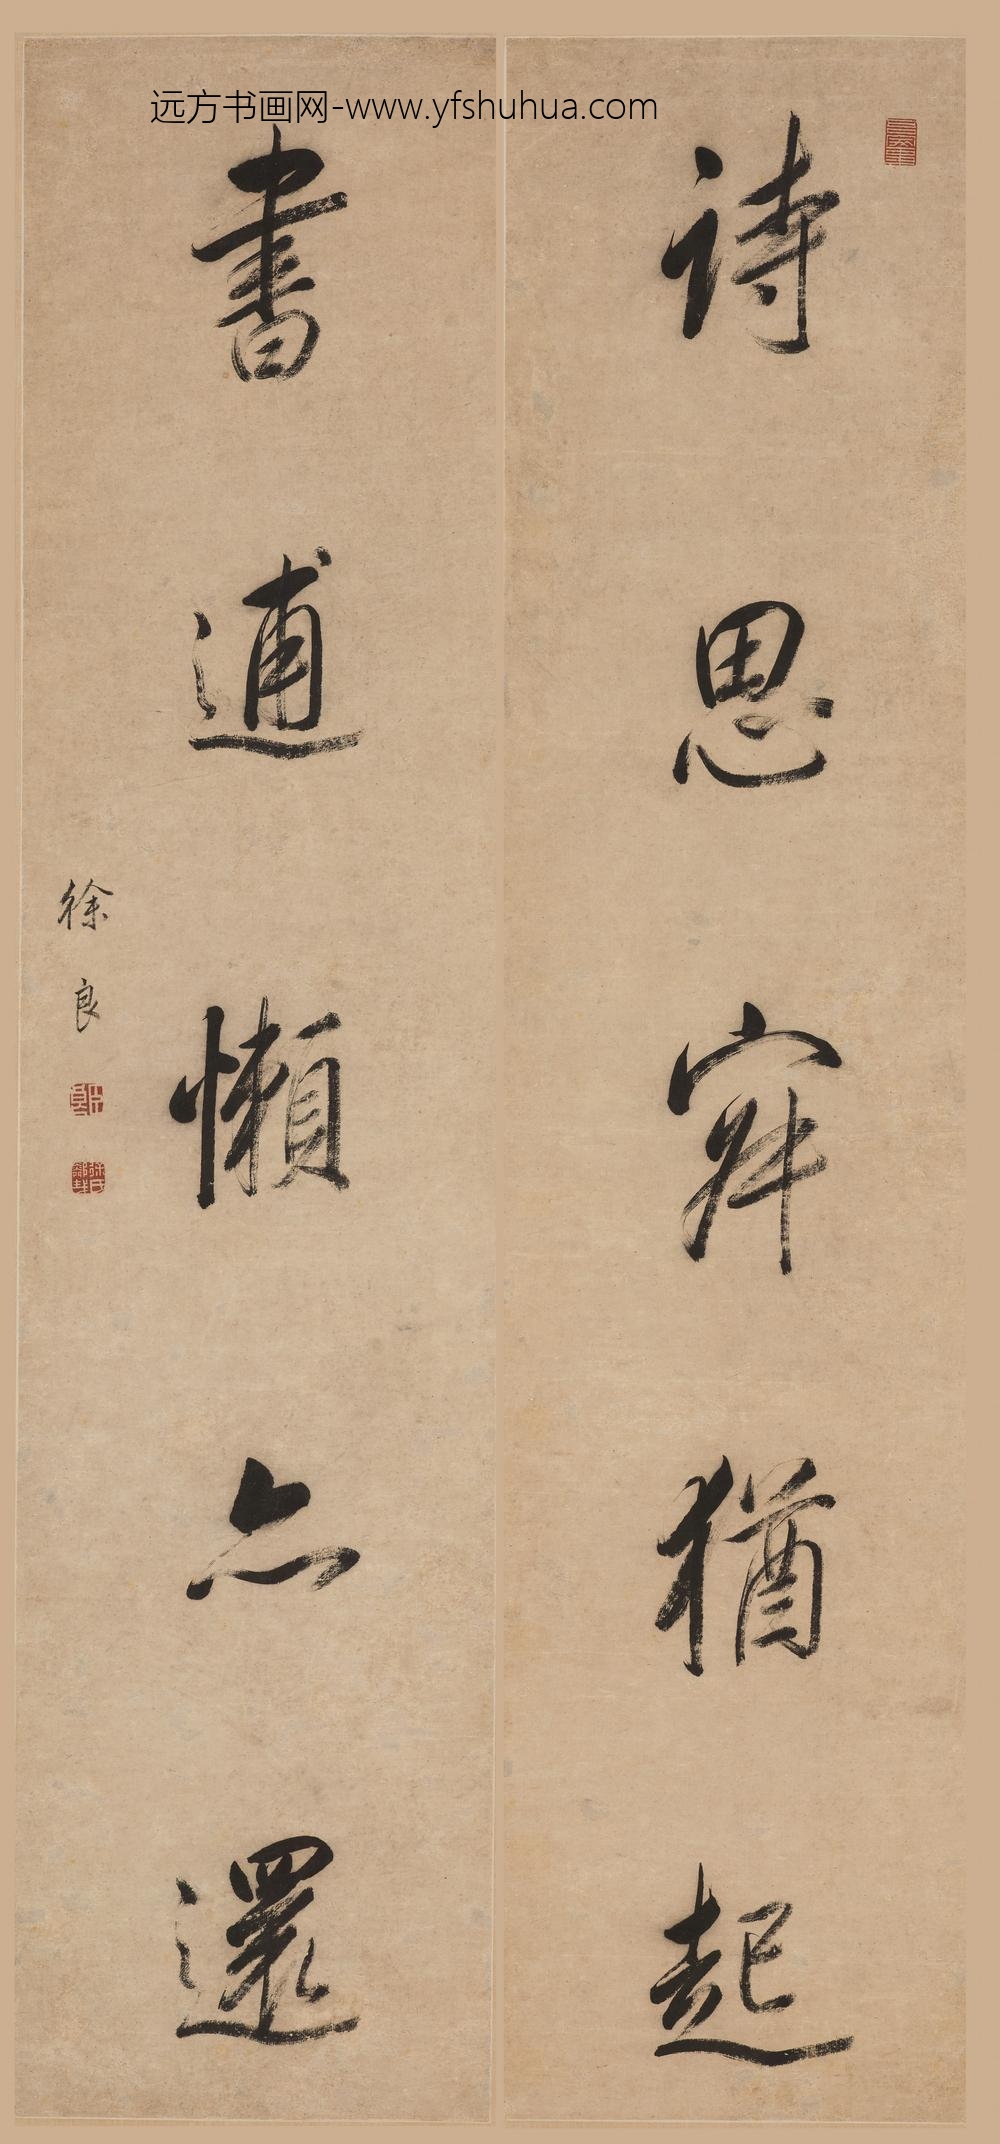 远方书画网-www.yfshuhua.com
詩思猶起
書逋懶亦還
徐良